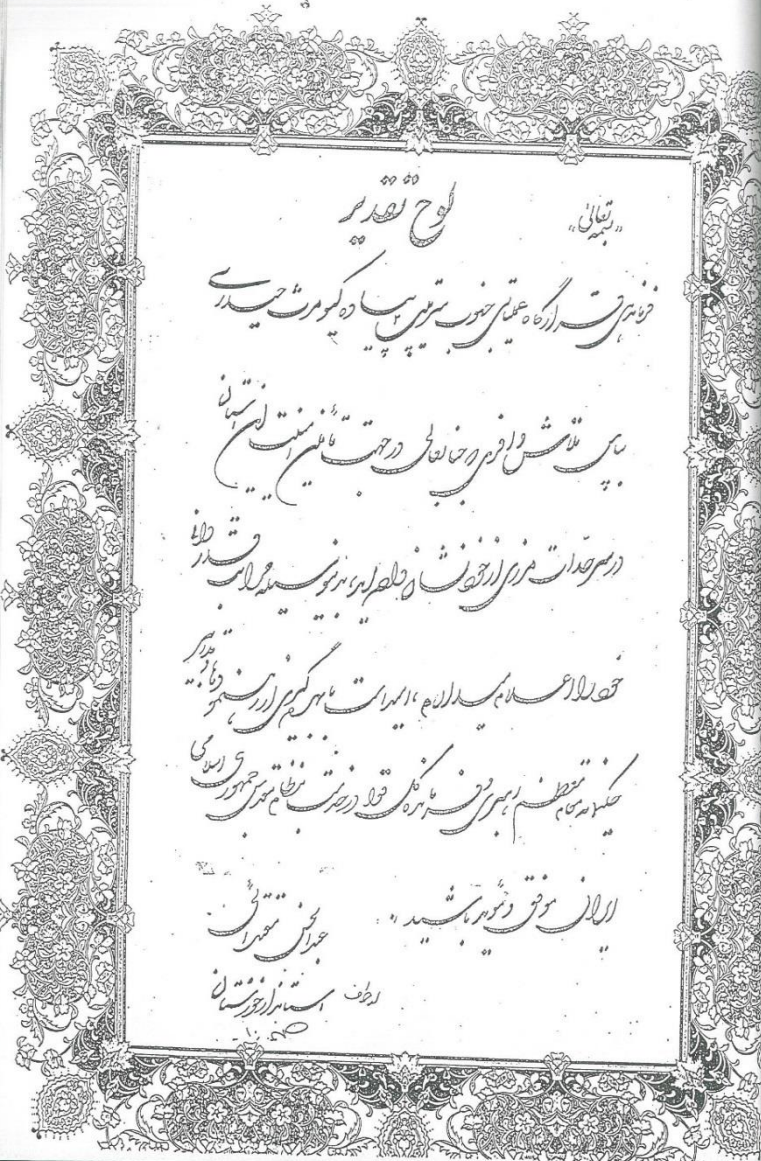 «بسمه تعالی»
لوح تقدیر
فرماندهی قرارگاه عملیاتی جنوب سرتیپ ۲ پیاده کیومرث حیدری
بپاس تلاش وافری که جنابعالی در جهت تأمین امنیت این استان
در سرحدات مرزی از خود نشان داده‌اید، بدینوسیله مراتب قدردانی
خود را اعلام میدارم، امید است با بهره‌گیری از رهنمودها و تدابیر
حکیمانه مقام معظم رهبری و فرمانده کل قوا در خدمت به نظام مقدس جمهوری اسلامی
ایران موفق و مؤید باشید.
عبدالحسن مقتدائی
استاندار خوزستان
از طرف